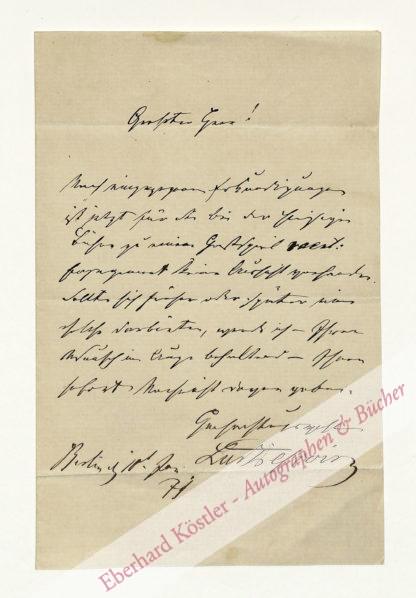 Geehrter Herr!
Nach eingezogenen Erkundigungen
ist jetzt für Sie bei der hiesigen
Bühne zu einem Gastspiel
keine Aussicht vorhanden.
Sollte sich früher oder später eine
solche darbieten, werde ich – Ihren
Wunsch im Auge behaltend – Ihnen
sofort Nachricht davon geben.
Berlin, d. Jan.
Eberhard Köstler - Autographen & Bücher